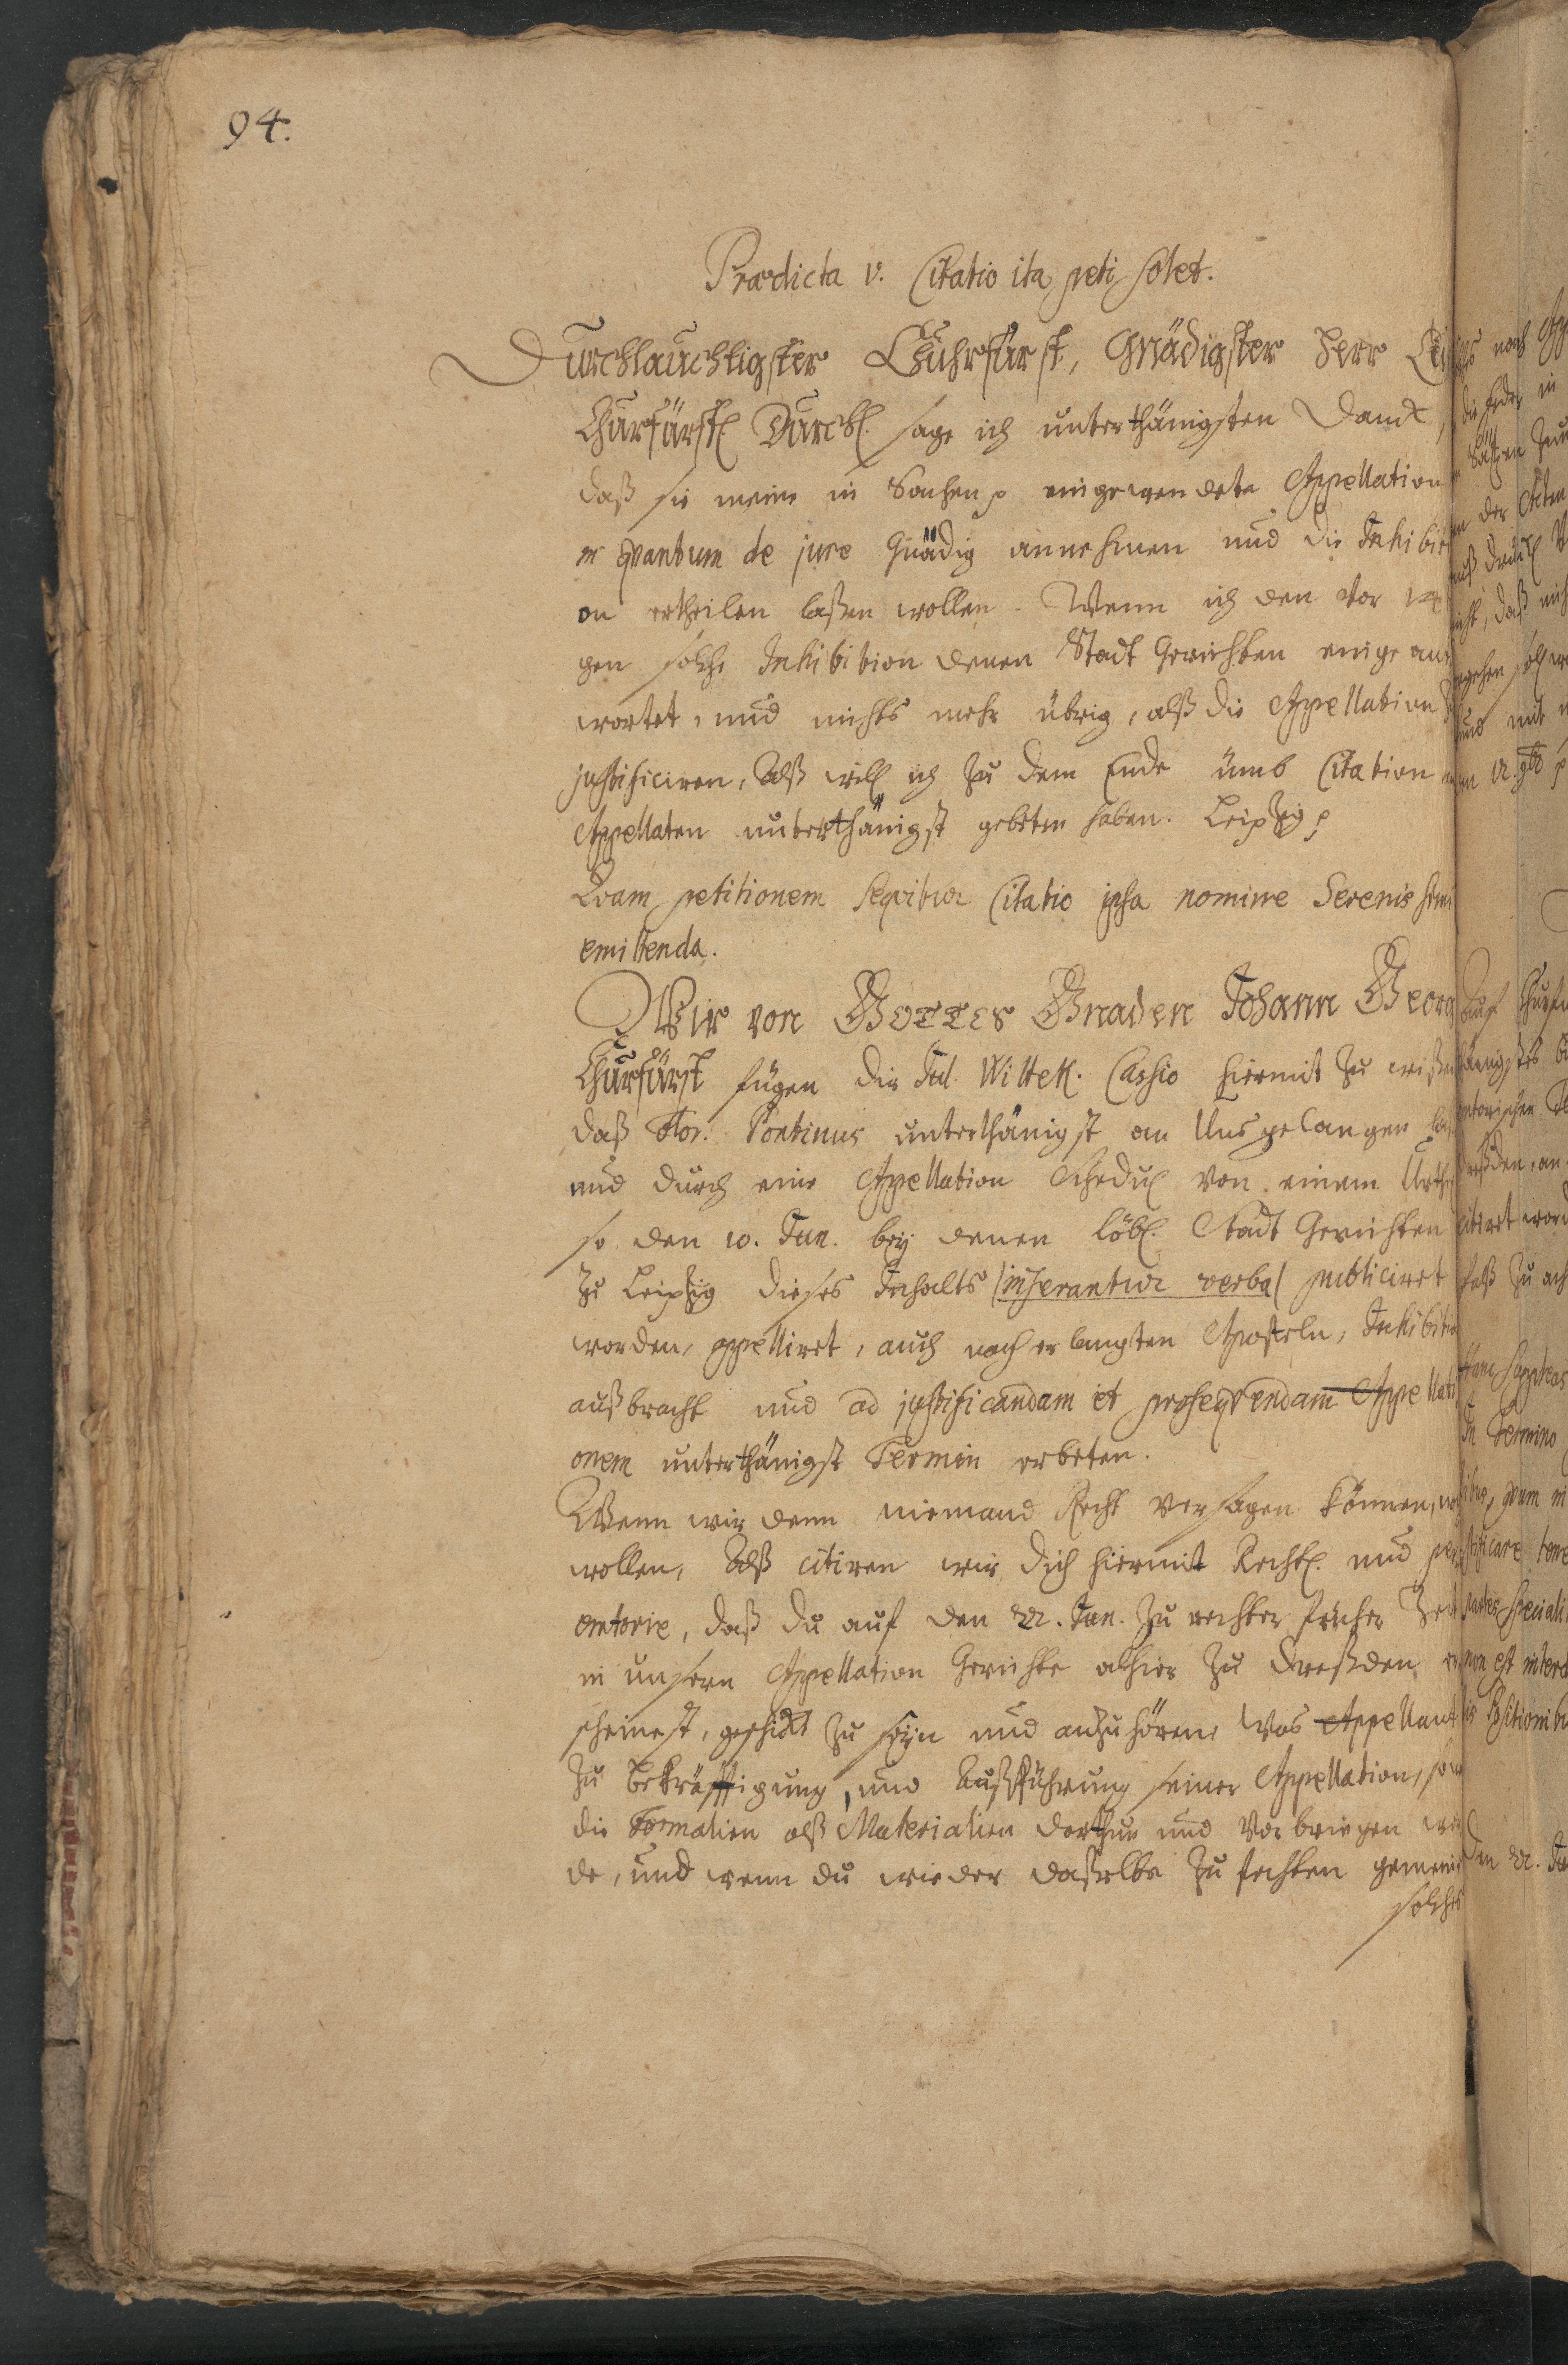 94.
Prædicta v. Citatio ita peti solet.
Durchlauchtigster Chuhrfürst, Gnädigster Herr
Churfürstl Durchl. sage ich unterthänigsten Danck,
daß sie meine in Sachen p eingewendete Appellation
in qvantum de jure Gnädig annehmen und die Inhibiti
on ertheilen laßen wollen. Wenn ich den vor 14
gen solche Inhibition denen Stadt Gerichten einge ant
wortet, und nichts mehr übrig, alß die Appellation
justificiren, Alß will ich zu dem Ende ümb Citation
Appellaten unterthänigst gebeten haben. Leipzig p
Qvam petitionem seqvitur Citatio ipsa nomine Serenissimi
emittenda.
Wir von GOTTES Gnaden Johann Georg
Churfürst fügen dir Cassio hiermit zu wißen
daß Flor. Pontinus unterthänigst an Uns gelangen
und durch eine Appellation Schedul von einem Urthel
so den 10. Jun. bey denen löbl. Stadt Gerichten
zu Leipzig dieses Inhalts (inserantur verba) publiciret
worden, appelliret, auch nach erlangten Aposteln, Inhibition
außbracht und ad justificandam et proseqvendam Appellati
onem unterthänigst Termin erbeten.
Wenn wir denn niemand Recht versagen können, noch
wollen, Alß citiren wir dich hiermit Rechtl. und per
emtorie, daß du auf den 22. Jan. zu rechter früher Zeit
in unsern Appellation Gerichte alhier zu Dreßden er
scheinest, geschickt zu seyn und anzuhören was Appellant
zu Bekräfftigung, und Außführung seiner Appellation, so
die Formalien alß Materialien darthun und vorbringen wer
de, und wenn du wieder daßelbe zu fechten gemeinet
solches